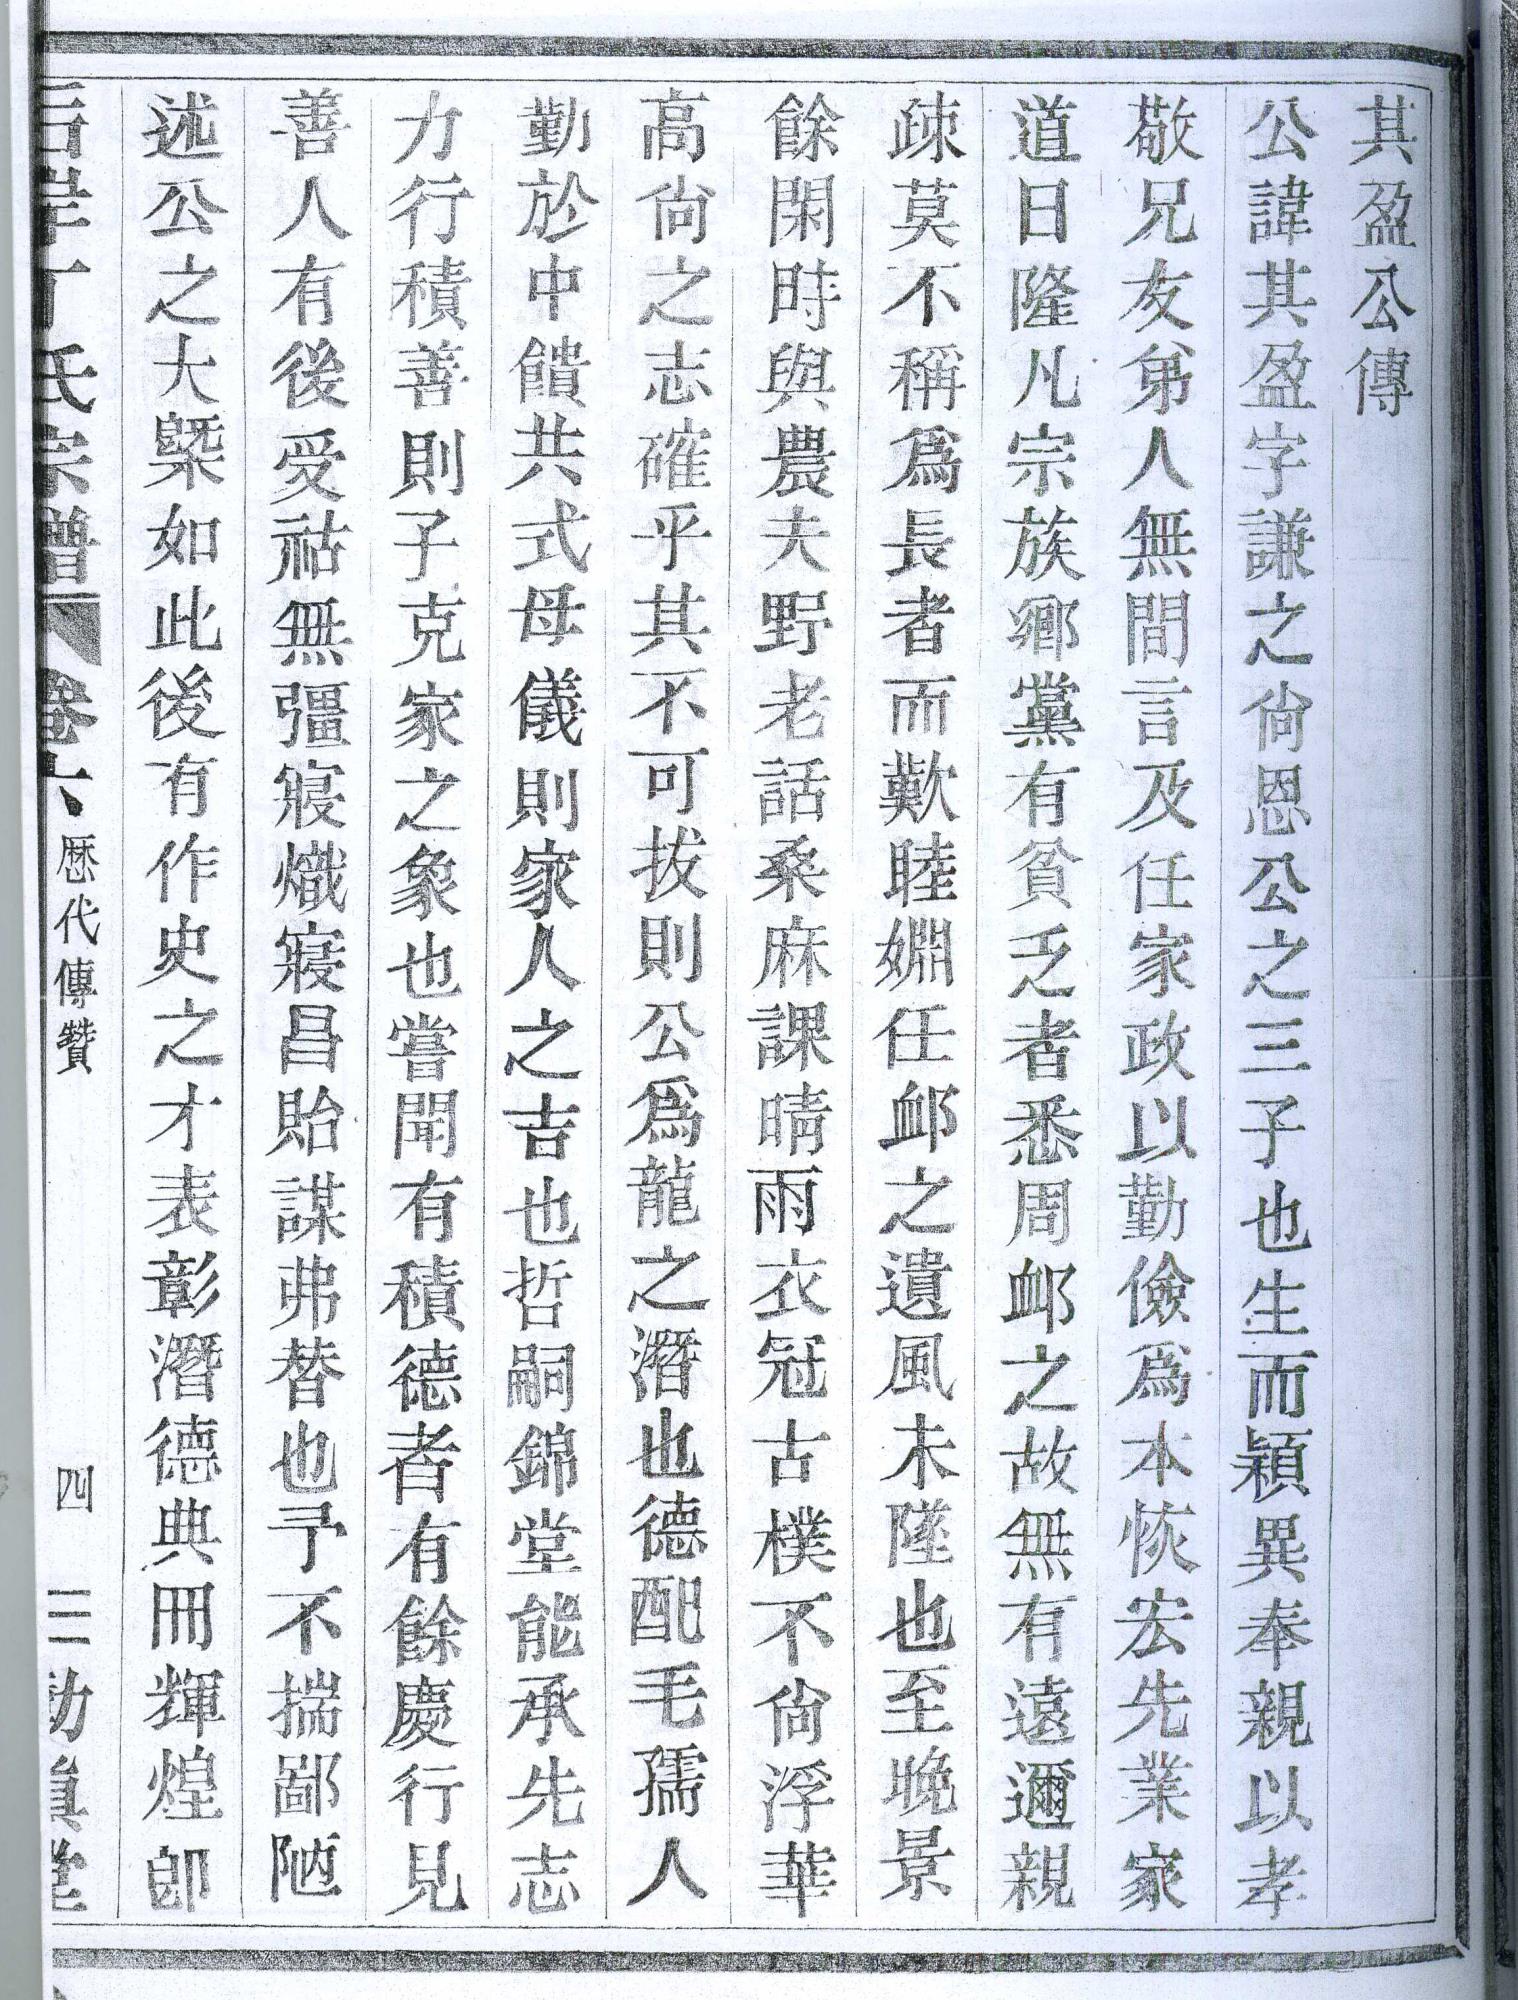 其盈公傳
公諱其盈字謙之尙恩公之三子也生而穎異奉親以孝
敬兄友弟人無間言及任家政以勤儉爲本恢宏先業家
道日隆凡宗族鄉黨有貧乏者悉周卹之故無有遠邇親
疎莫不稱爲長者而歎睦婣任卹之遺風未墜也至晚景
餘閑時與農夫野老話桑麻課晴雨衣冠古樸不尙浮華
高尙之志確乎其不可拔則公爲龍之潛也德配毛孺人
勤於中饋共式母儀則家人之吉也哲嗣錦堂能承先志
力行積善則子克家之象也嘗聞有積德者有餘慶行見
善人有後受祜無彊寖熾寖昌貽謀弗替也予不揣鄙陋
述公之大槩如此後有作史之才表彰潛德典冊輝煌卽
氏宗譜 卷六 歷代傳贊 四 三 勤眞堂